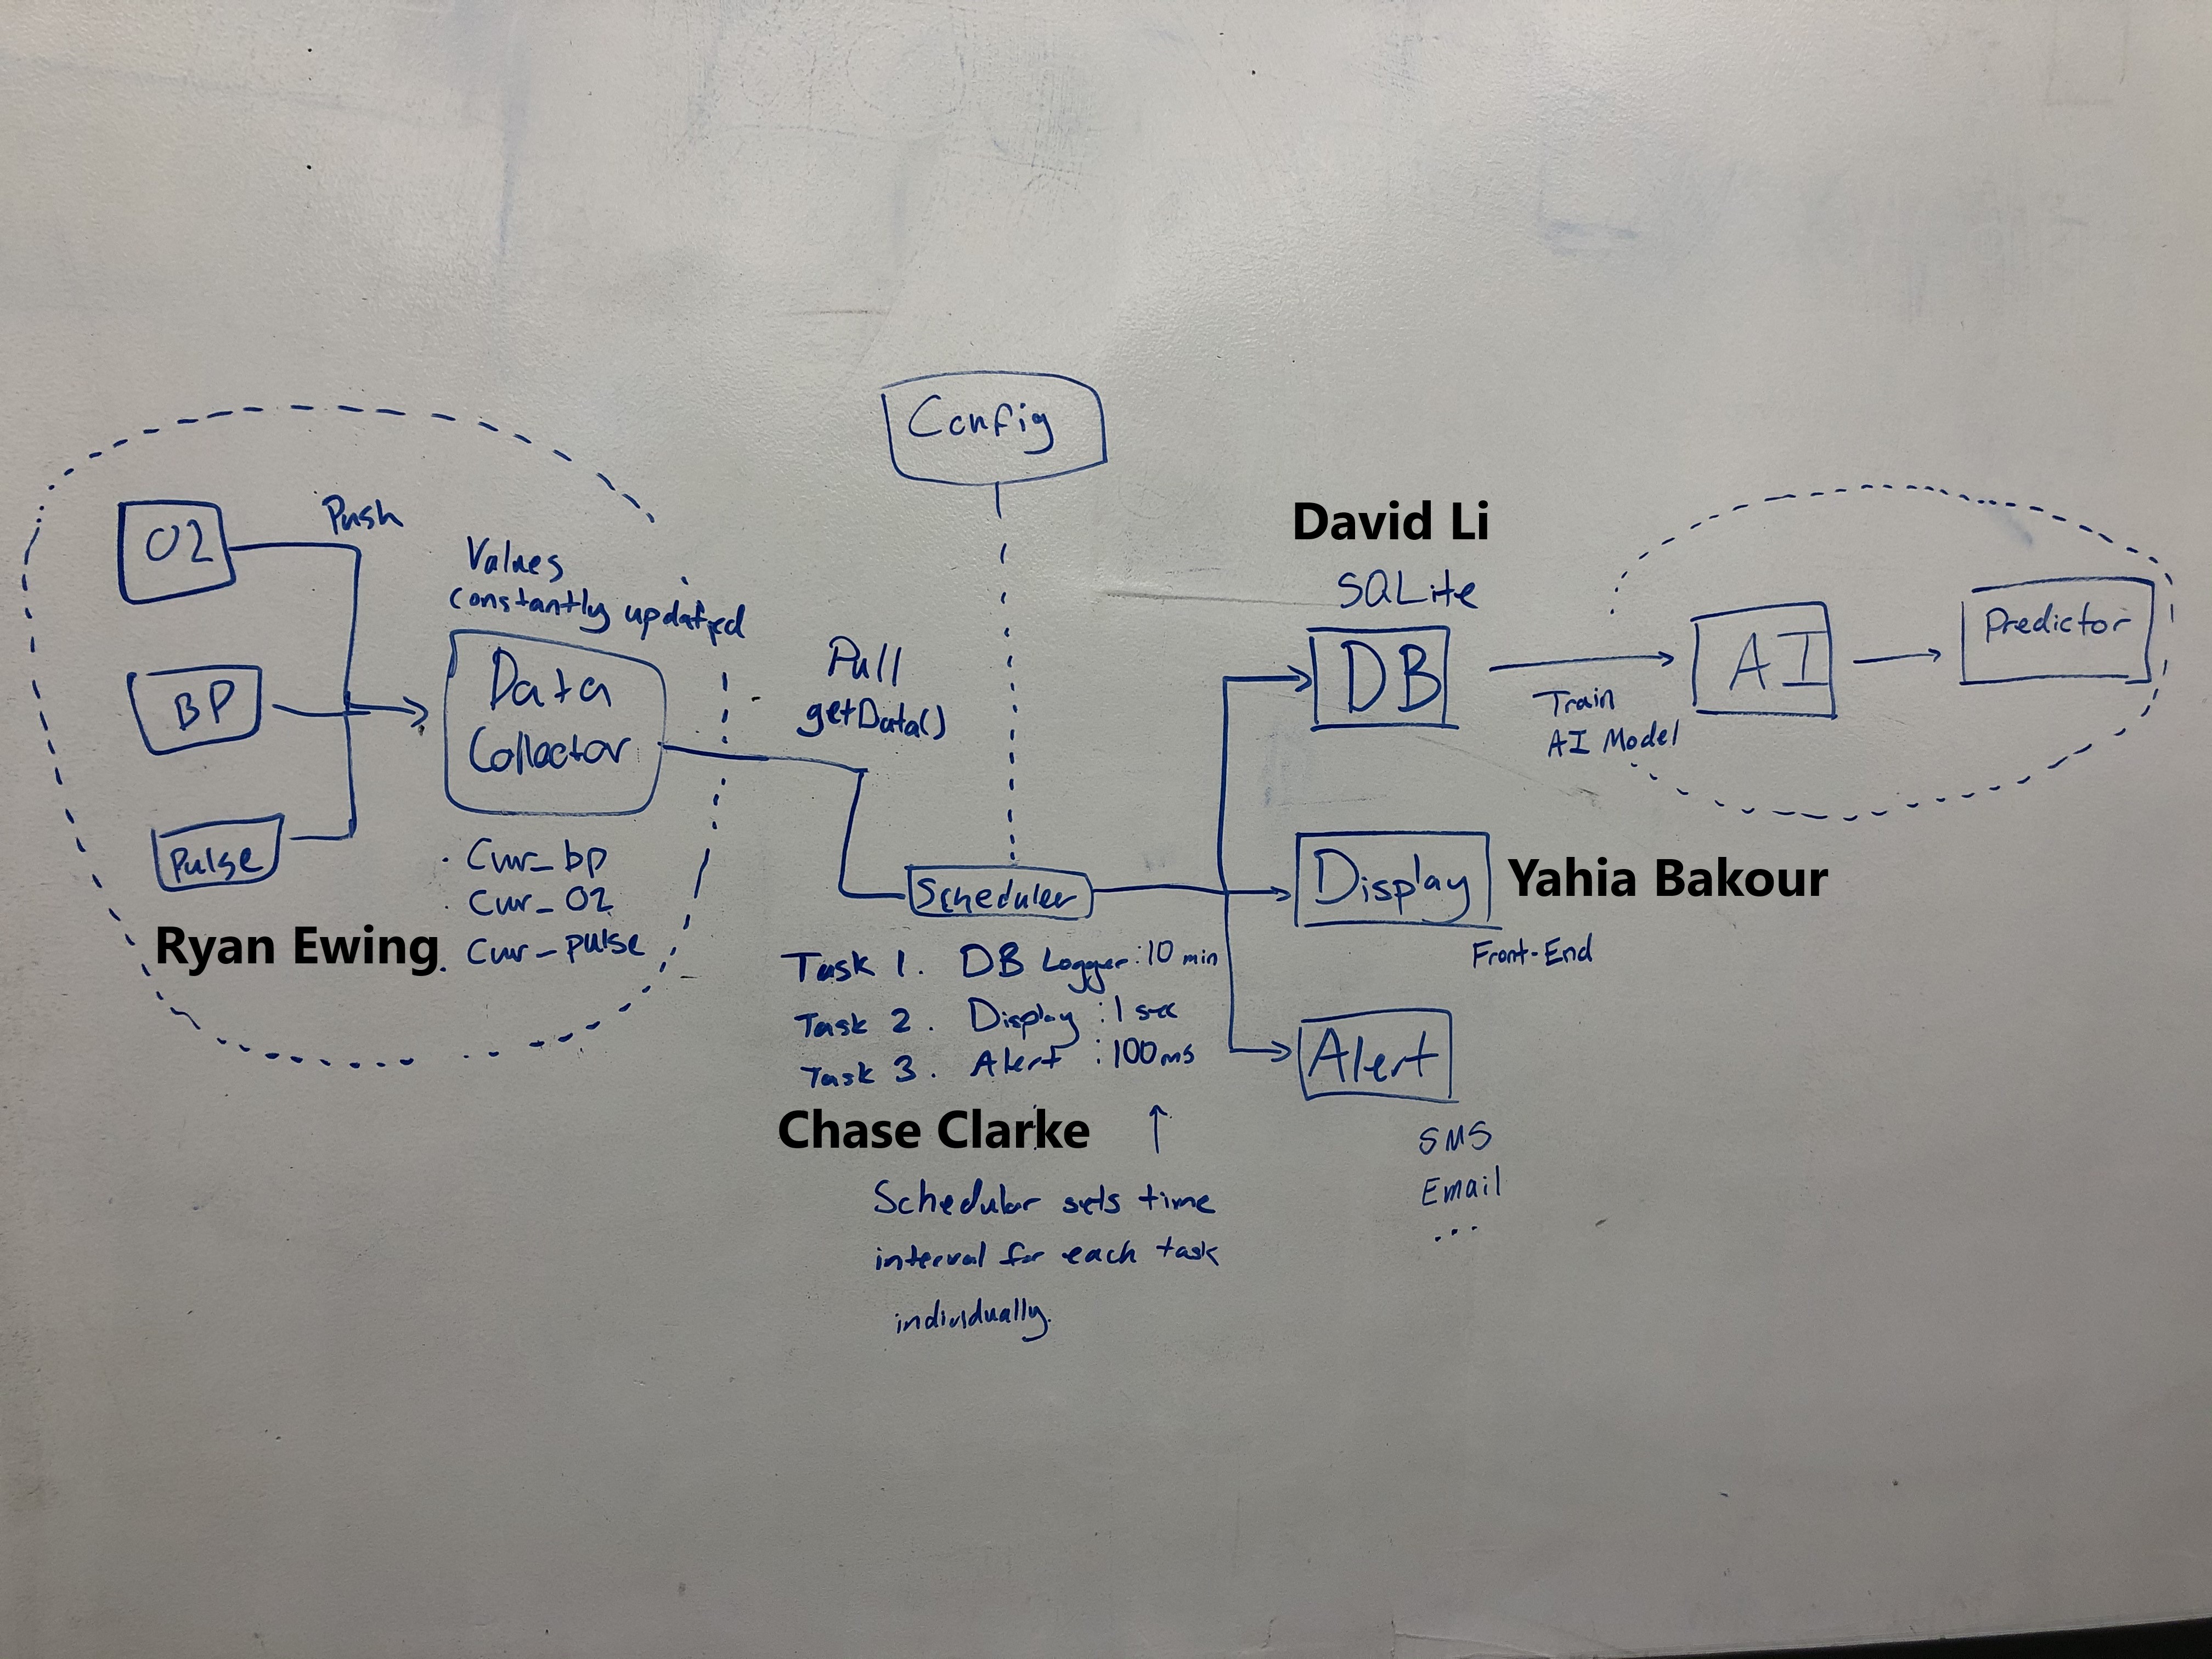 Config
O2
Push
Values
constantly updated
BP
Data
Collector
Pulse
Cur_bp
Cur_O2
Cur_pulse
Ryan Ewing
Pull
getData()
Scheduler
Task 1. DB Logger: 10 min
Task 2. Display : 1 sec
Task 3. Alert : 100ms
Chase Clarke
↑
Schedular sets time
interval for each task
individually.
David Li
SQLite
DB
Train
AI Model
AI
Predictor
Display
Yahia Bakour
Front-End
Alert
SMS
Email
...